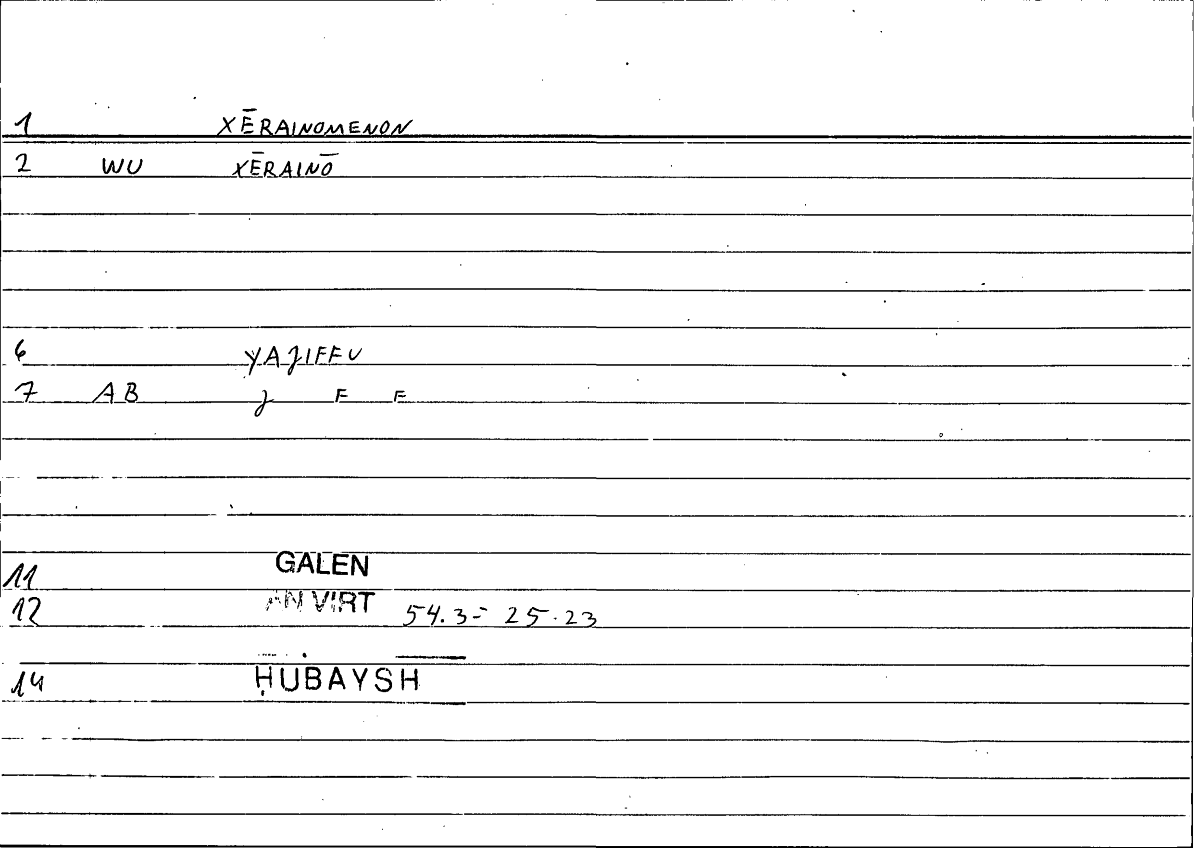 1 XĒRAINOMENON
2 WU XĒRAINŌ
6 YAJIFFU
7 AB J F F
11 GALEN
12 AN VIRT 54.3 = 25.23
14 ḤUBAYSH